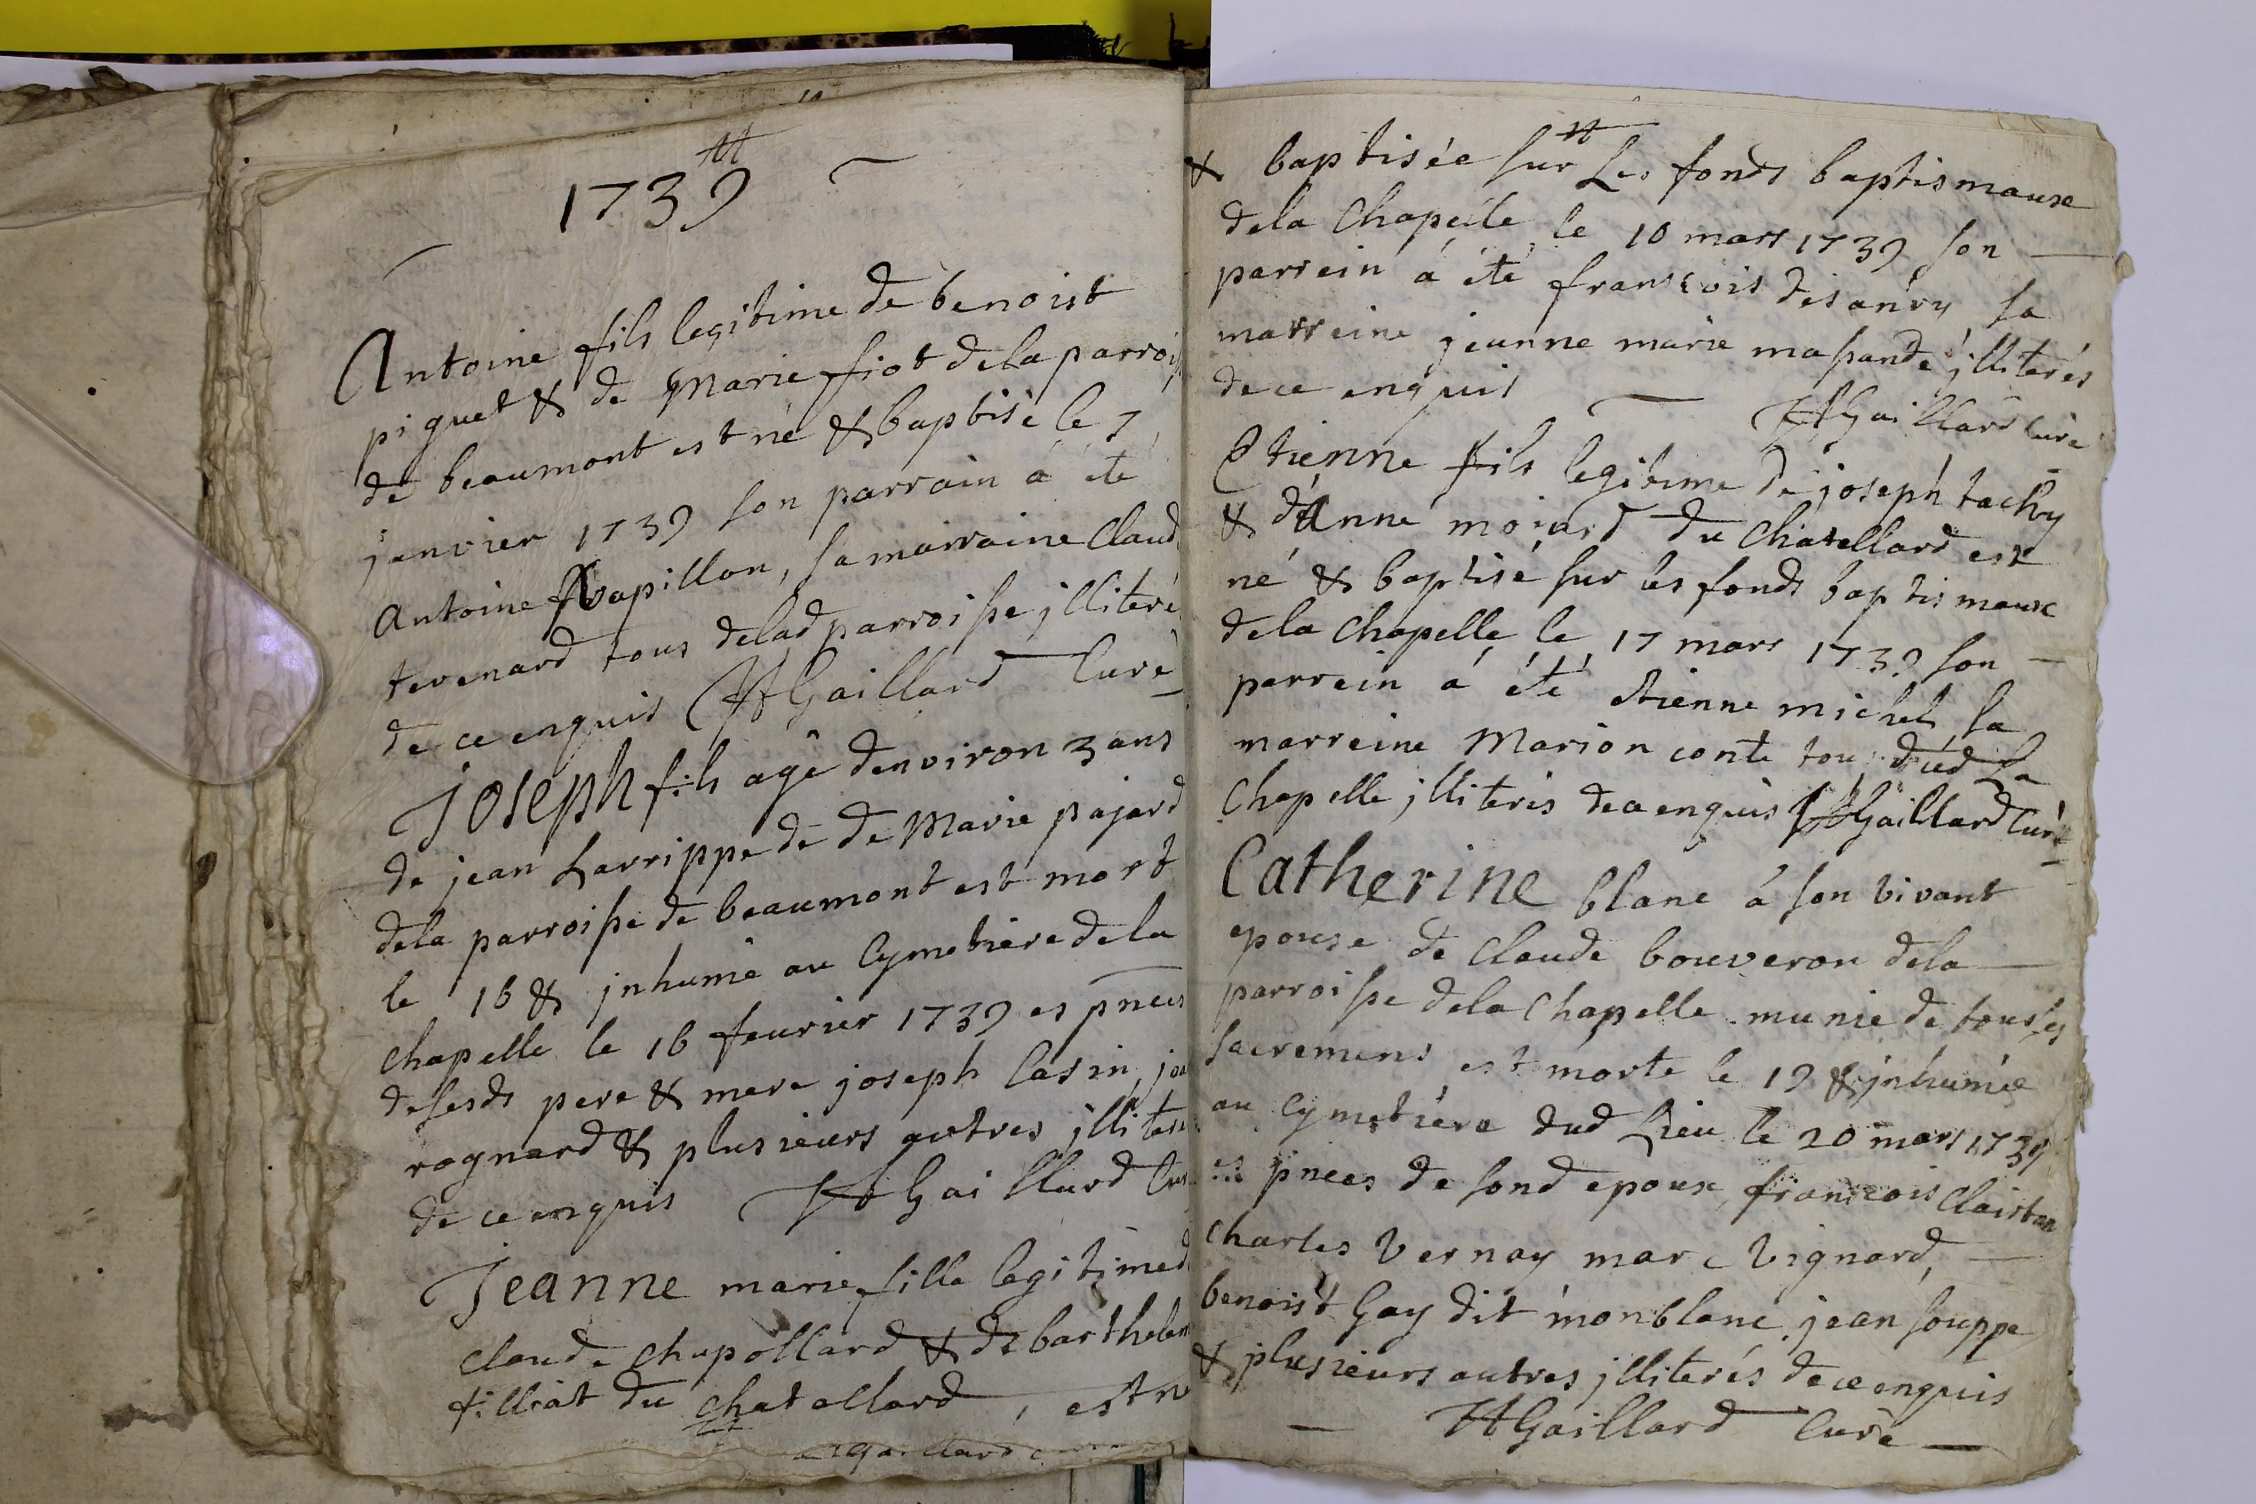 1739
Antoine fils legitime de benoist
piguet & de Marie fiot dela parroiss
de beaumont est né & baptisé le 7
janvier 1739 son parrain a été
antoine papillon, sa marraine Claud
tevenard tous delad parroisse illiteré
de ce enquis Gaillard Curé
Joseph fils agé denviron 3 ans
de jean Larrippe de de Marie pajard
dela parroisse de beaumont est mort
le 16 & inhumé au Cymetiere dela
chapelle le 16 feurier 1739 es pnces
desesds pere & mere joseph Casin
rognard & plusieurs autres illiter
de ce enquis Gaillard Cur
Jeanne marie fille legitime d
claude chapollard & de barthelem
filliat du chatellard, est n
Gaillard
& baptisée sur Les fonds baptismaux
dela Chapelle le 10 mars 1739 son
parrein a été françois desanry sa
marreine jeanne marie masande illiterés
de ce enquis Gaillard Curé
Etienne fils legitime de joseph tachy
& d'Anne moiard du Chatellard est
né & baptisé sur les fonds baptismaux
dela Chapelle le 17 mars 1739 son
parrein a été étienne michel sa
marreine Marion conte tous dud La
Chapelle illiterés de ce enquis Gaillard Curé
Catherine blanc a son vivant
epouse de Claude bouveron dela
parroisse dela Chapelle munie de tous les
sacremens est morte le 19 & inhumée
au Cymetiere dud Lieu le 20 mars 1739
es pnces de sond epoux françois
Charles Vernay marc Vignard,
benoist Gay dit monblanc jean souppe
& plusieurs autres illiterés de ce enquis
Gaillard Curé